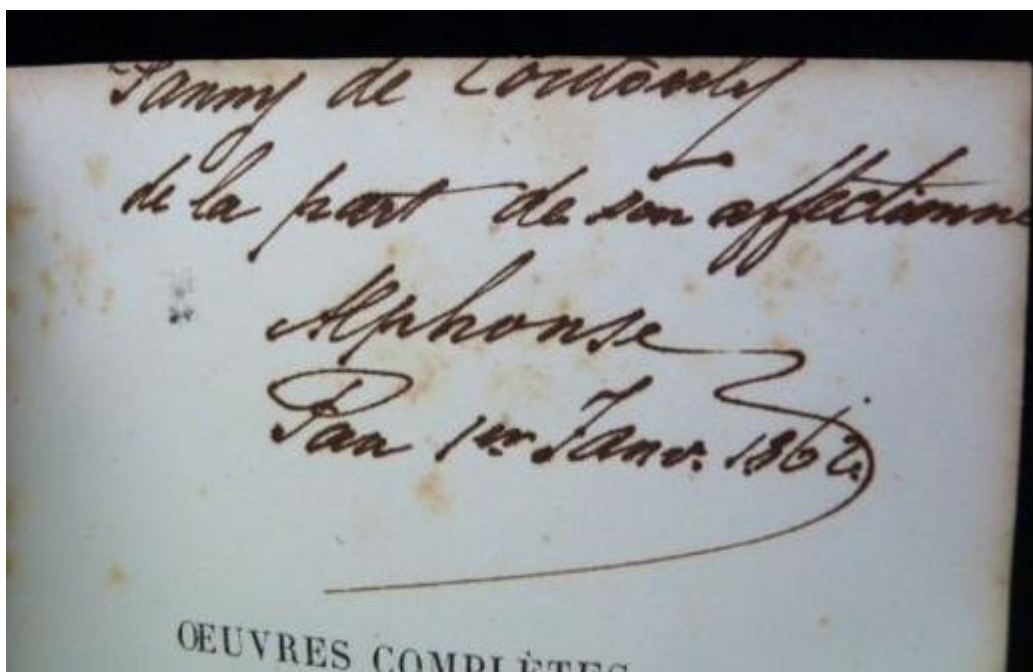 Fanny de Coutouly
de la part de son affectionné
Alphonse
Pau 1er Janv. 1862.
OEUVRES COMPLÈTES